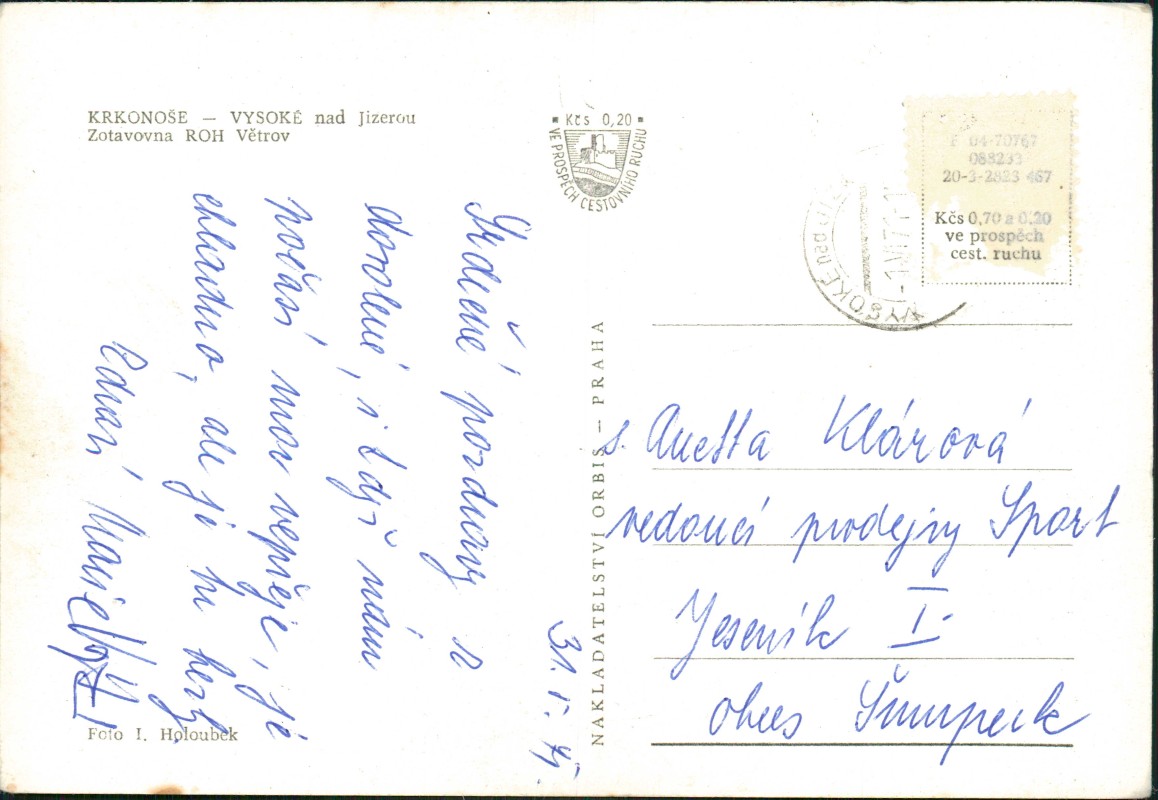 KRKONOŠE — VYSOKÉ nad Jizerou
Zotavovna ROH Větrov
Kčs 0,20
VE PROSPĚCH CESTOVNÍHO RUCHU
F 04-70767
088233
20-3-2823 467
Kčs 0,70 a 0.20
ve prospěch
cest. ruchu
VYSOKÉ
-1.VI.71-
31. 5. 71
Srdečné pozdravy z
dovolené, i když nám
počasí moc nepřeje, je
chladno, ale je tu hezky
Zdraví Marie
NAKLADATELSTVÍ ORBIS — PRAHA
s. Anetta Klárová
vedoucí prodejny Sport
Jeseník I.
okres Šumperk
Foto I. Holoubek